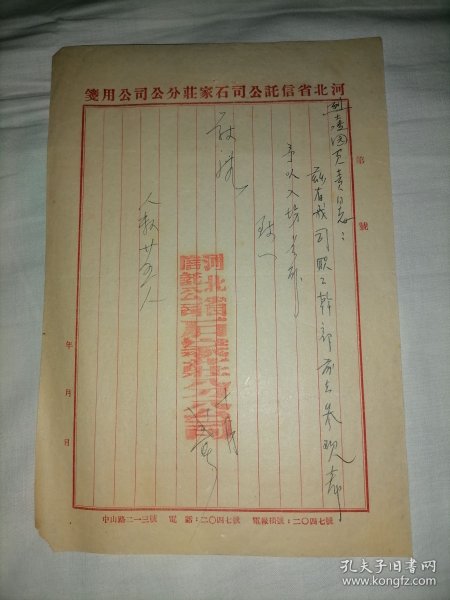 河北省信託公司石家莊分公司公用箋
第 號
負責同志：
茲有我司職工幹部前去參观，請
予以入塲是荷
致
敬礼
人数廿五人
河北省
信託公司石家莊分公司
年 月 日
中山路二一三號 電話：二〇四七號 電報掛號：二〇四七號
孔夫子旧书网
www.kongfz.com